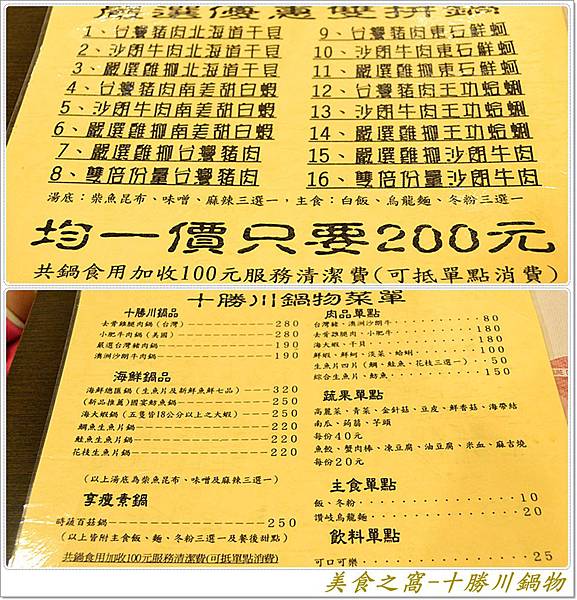 嚴選優惠雙拼鍋
1、台灣豬肉北海道干貝
2、沙朗牛肉北海道干貝
3、嚴選雞柳北海道干貝
4、台灣豬肉南美甜白蝦
5、沙朗牛肉南美甜白蝦
6、嚴選雞柳南美甜白蝦
7、嚴選雞柳台灣豬肉
8、雙倍份量台灣豬肉
9、台灣豬肉東石鮮蚵
10、沙朗牛肉東石鮮蚵
11、嚴選雞柳東石鮮蚵
12、台灣豬肉王功蛤蜊
13、沙朗牛肉王功蛤蜊
14、嚴選雞柳王功蛤蜊
15、嚴選雞柳沙朗牛肉
16、雙倍份量沙朗牛肉
湯底：柴魚昆布、味噌、麻辣三選一，主食：白飯、烏龍麵、冬粉三選一
均一價只要200元
共鍋食用加收100元服務清潔費(可抵單點消費)
十勝川鍋物菜單
十勝川鍋品
去骨雞腿肉鍋(台灣)-----280
小肥牛肉鍋(美國)-----280
嚴選台灣豬肉鍋-----190
澳洲沙朗牛肉鍋-----190
海鮮鍋品
海鮮總匯鍋(生魚片及新鮮魚鮮七品)---320
(新品推薦)國宴魴魚鍋-----250
海大蝦鍋(五隻皆18公分以上之大蝦)---250
鯛魚生魚片鍋-----220
鮭魚生魚片鍋-----220
花枝生魚片鍋-----220
(以上湯底為柴魚昆布、味噌及麻辣三選一)
享瘦素鍋
時蔬百菇鍋-----250
(以上皆附主食飯、麵、冬粉三選一及餐後甜點)
共鍋食用加收100元服務清潔費(可抵單點消費)
肉品單點
台灣豬、澳洲沙朗牛·····80
去骨雞腿肉、小肥牛·····180
海大蝦、干貝·····180
鮮蝦、鮮蚵、淡菜、蛤蜊·····100
生魚片四片(鯛、鮭魚、花枝三選一)··50
綜合生魚片、魴魚·····150
蔬果單點
高麗菜、青菜、金針菇、豆皮、鮮香菇、海帶結
南瓜、蒟蒻、芋頭
每份40元
魚餃、蟹肉棒、凍豆腐、油豆腐、米血、麻吉燒
每份20元
主食單點
飯、冬粉·····10
讚岐烏龍麵·····20
飲料單點
可口可樂·····25
美食之窩-十勝川鍋物